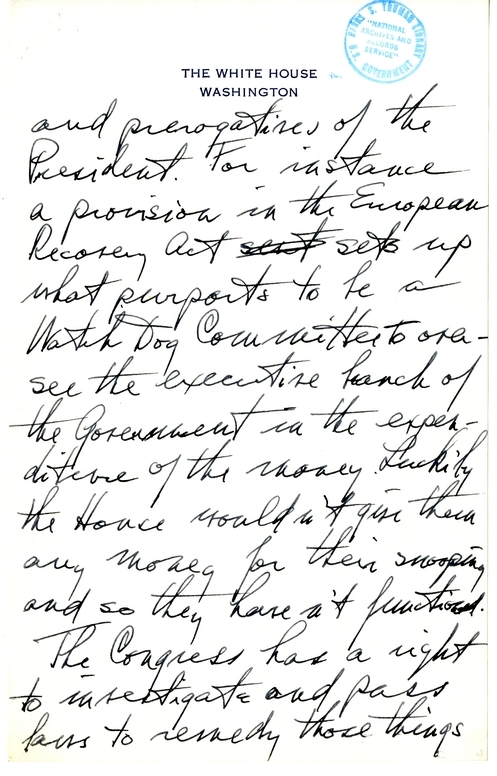 HARRY S. TRUMAN LIBRARY
"NATIONAL
ARCHIVES AND
RECORDS
SERVICE"
U.S. GOVERNMENT
THE WHITE HOUSE
WASHINGTON
and prerogatives of the
President. For instance
a provision in the European
Recovery Act sent sets up
what purports to be a
Watch Dog Committee to over-
see the executive branch of
the Government in the expen-
diture of the money. Luckily
the House wouldn't give them
any money for their snooping
and so they haven't functioned.
The Congress has a right
to investigate and pass
laws to remedy those things